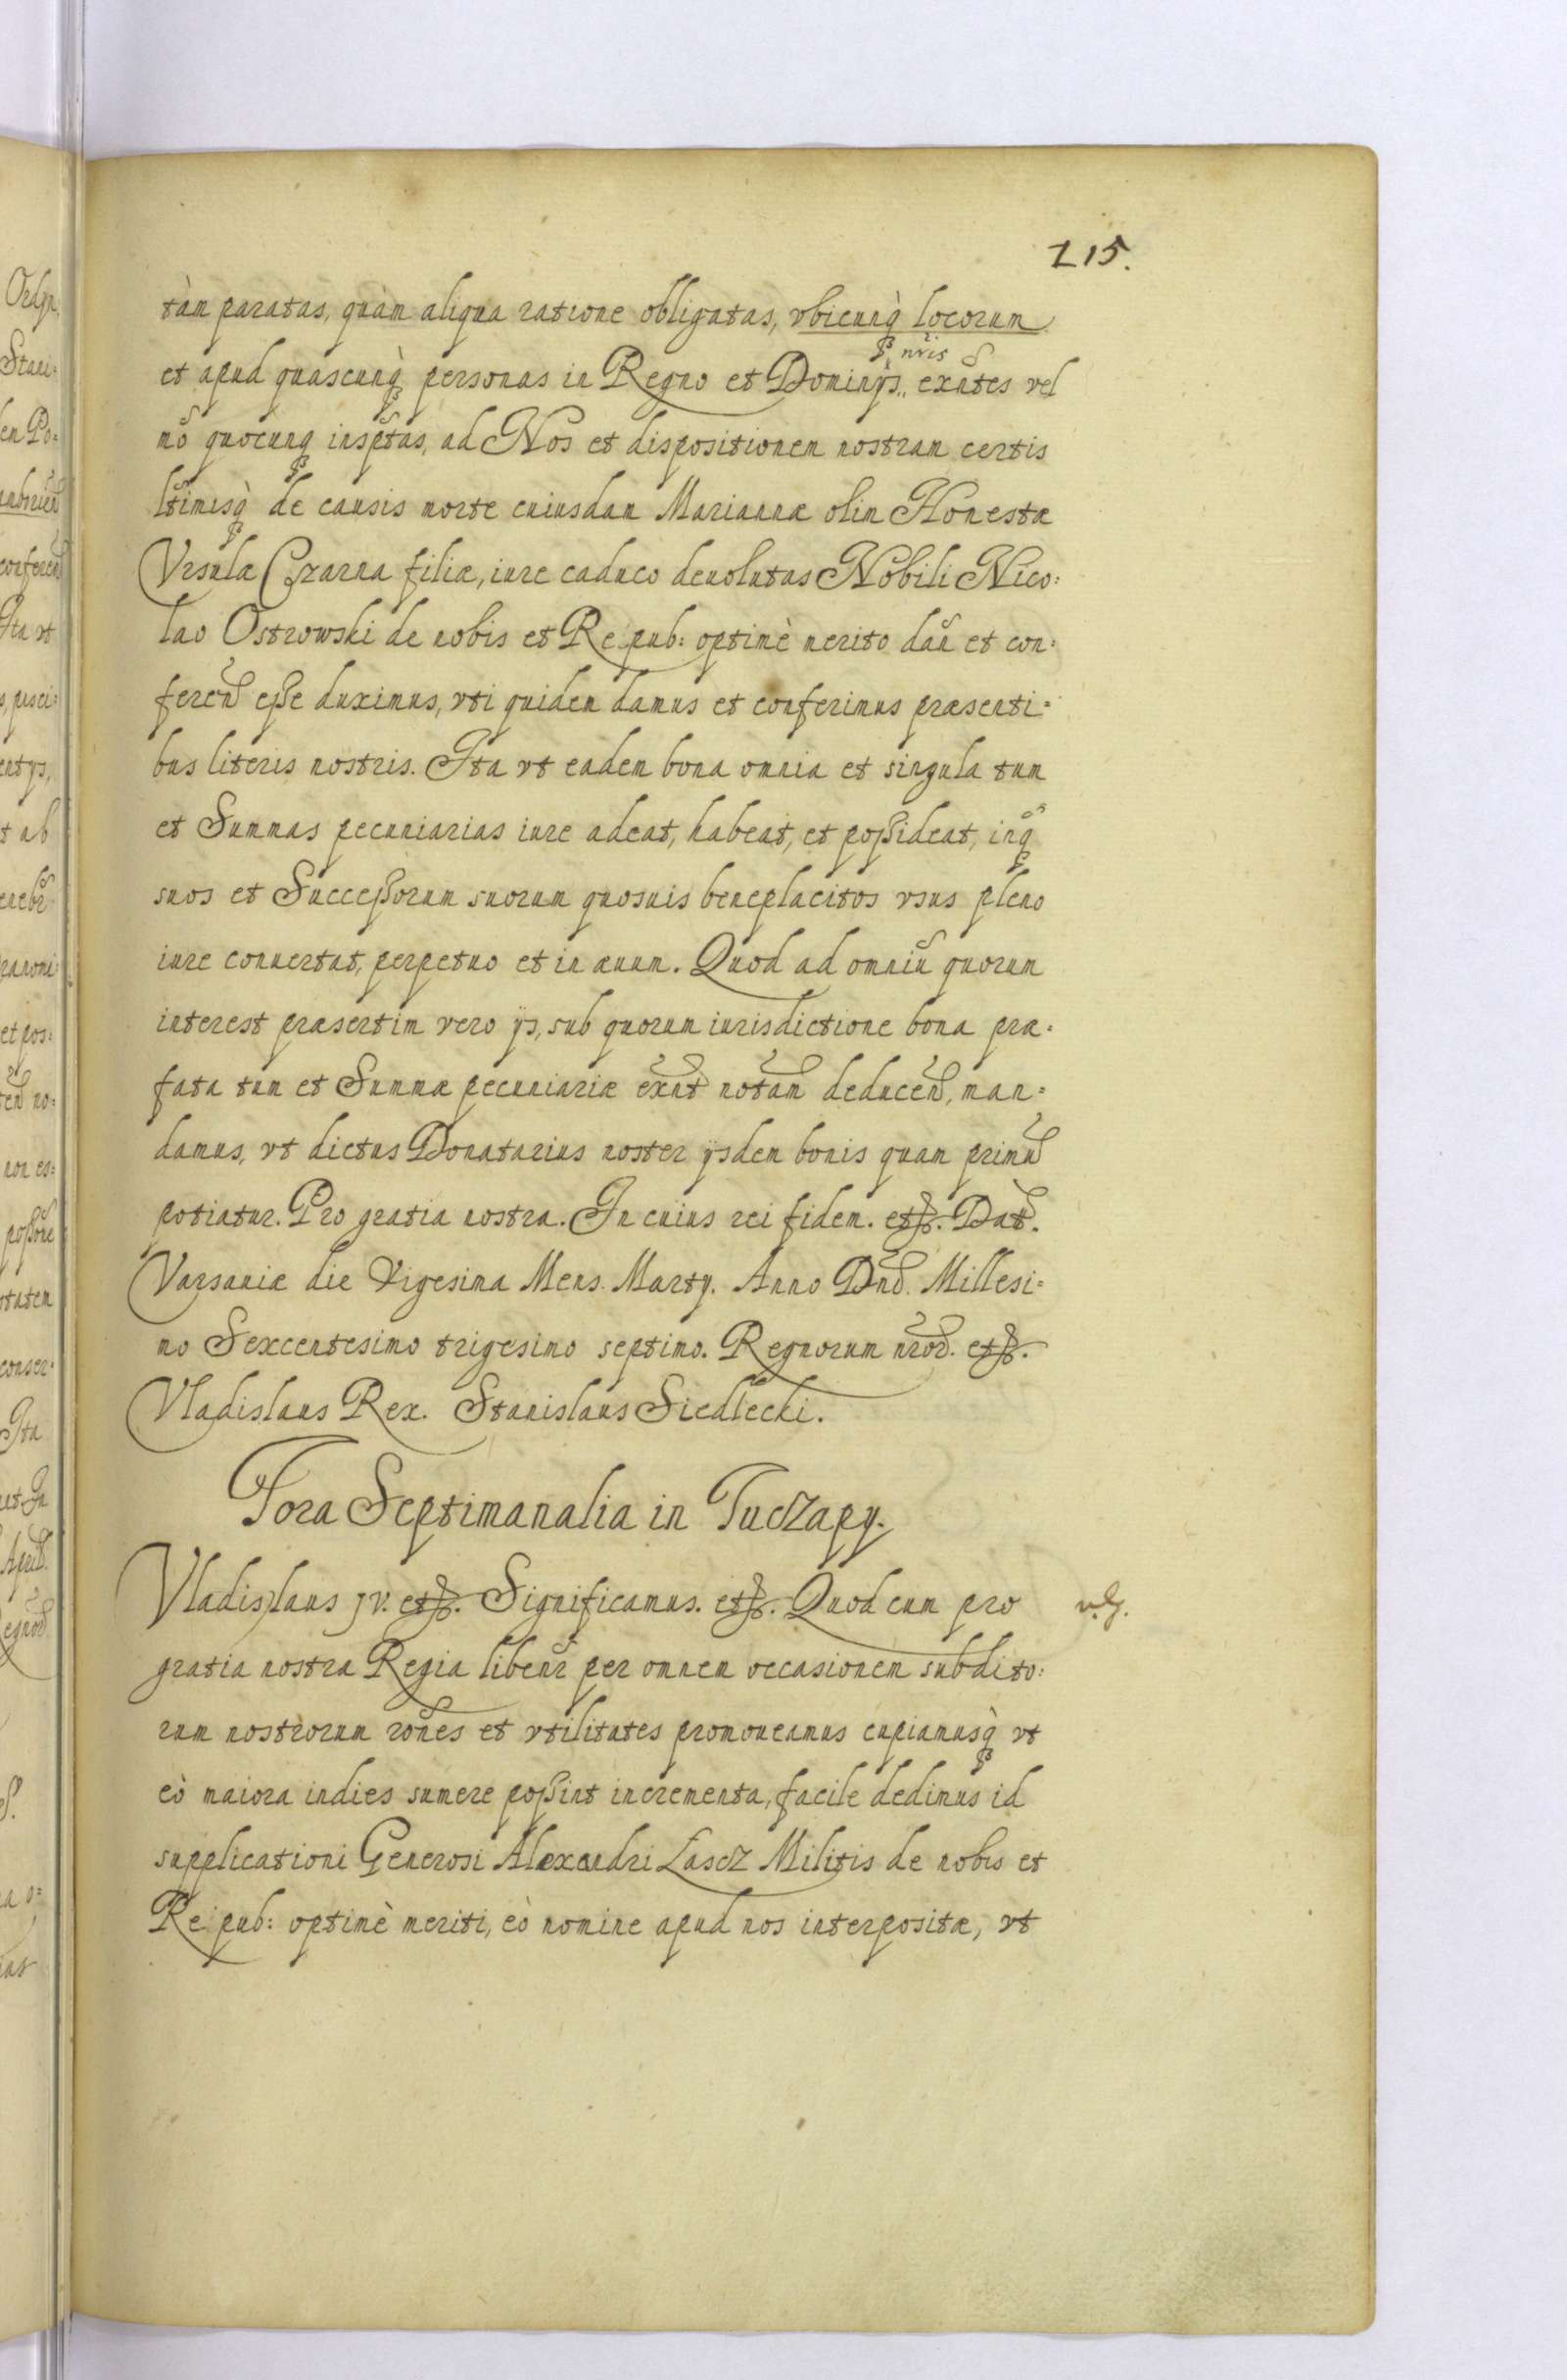 215.
tàm paratas, quàm aliqua ratione obligatas, vbicunq locorum
et apud quascunq personas in Regno et Dominÿs nris exñtes vel
mõ quocunq inspttas, ad Nos et dispositionem nostram certis
ltimisq de causis morte cuiusdam Mariannæ olim Honestæ
Vrsulæ Czarna filiæ, iure caduco deuolutas Nobili Nico:
lao Ostrowski de nobis et Reipub: optimè merito dañ et con:
ferend eße duximus, vti quidem damus et conferimus præsenti:
bus literis nostris. Ita vt eadem bona omnia et singula tum
et Summas pecuniarias iure adeat, habeat, et poßideat, inq
suos et Succeßorum suorum quosuis beneplacitos vsus pleno
iure conuertat, perpetuo et in æuum. Quod ad omniũ quorum
interest præsertim vero ÿs, sub quorum iurisdictione bona præ:
fata tum et Summæ pecuniariæ exñt notam deducend, man:
damus, vt dictus Donatarius noster ÿsdem bonis quam primũ
potiatur. Pro gratia nostra. In cuius rei fidem. etc. Dat.
Varsauiæ die Vigesima Mens. Martÿ. Anno Dnd. Millesi:
mo Sexcentesimo trigesimo septimo. Regnorum nror. etc.
Vladislaus Rex. Stanislaus Siedlecki.
Fora Septimanalia in Tuczapy.
Vladislaus jv. etc. Significamus. etc. Quod cum pro
gratia nostra Regia libenr per omnem occasionem subdito:
rum nostrorum rões et vtilitates promoueamus cupiamusq vt
eò maiora indies sumere poßint incrementa, facile dedimus id
supplicationi Generosi Alexandri Łascz Militis de nobis et
Reipub: optimè meriti, eò nomine apud nos interpositæ, vt